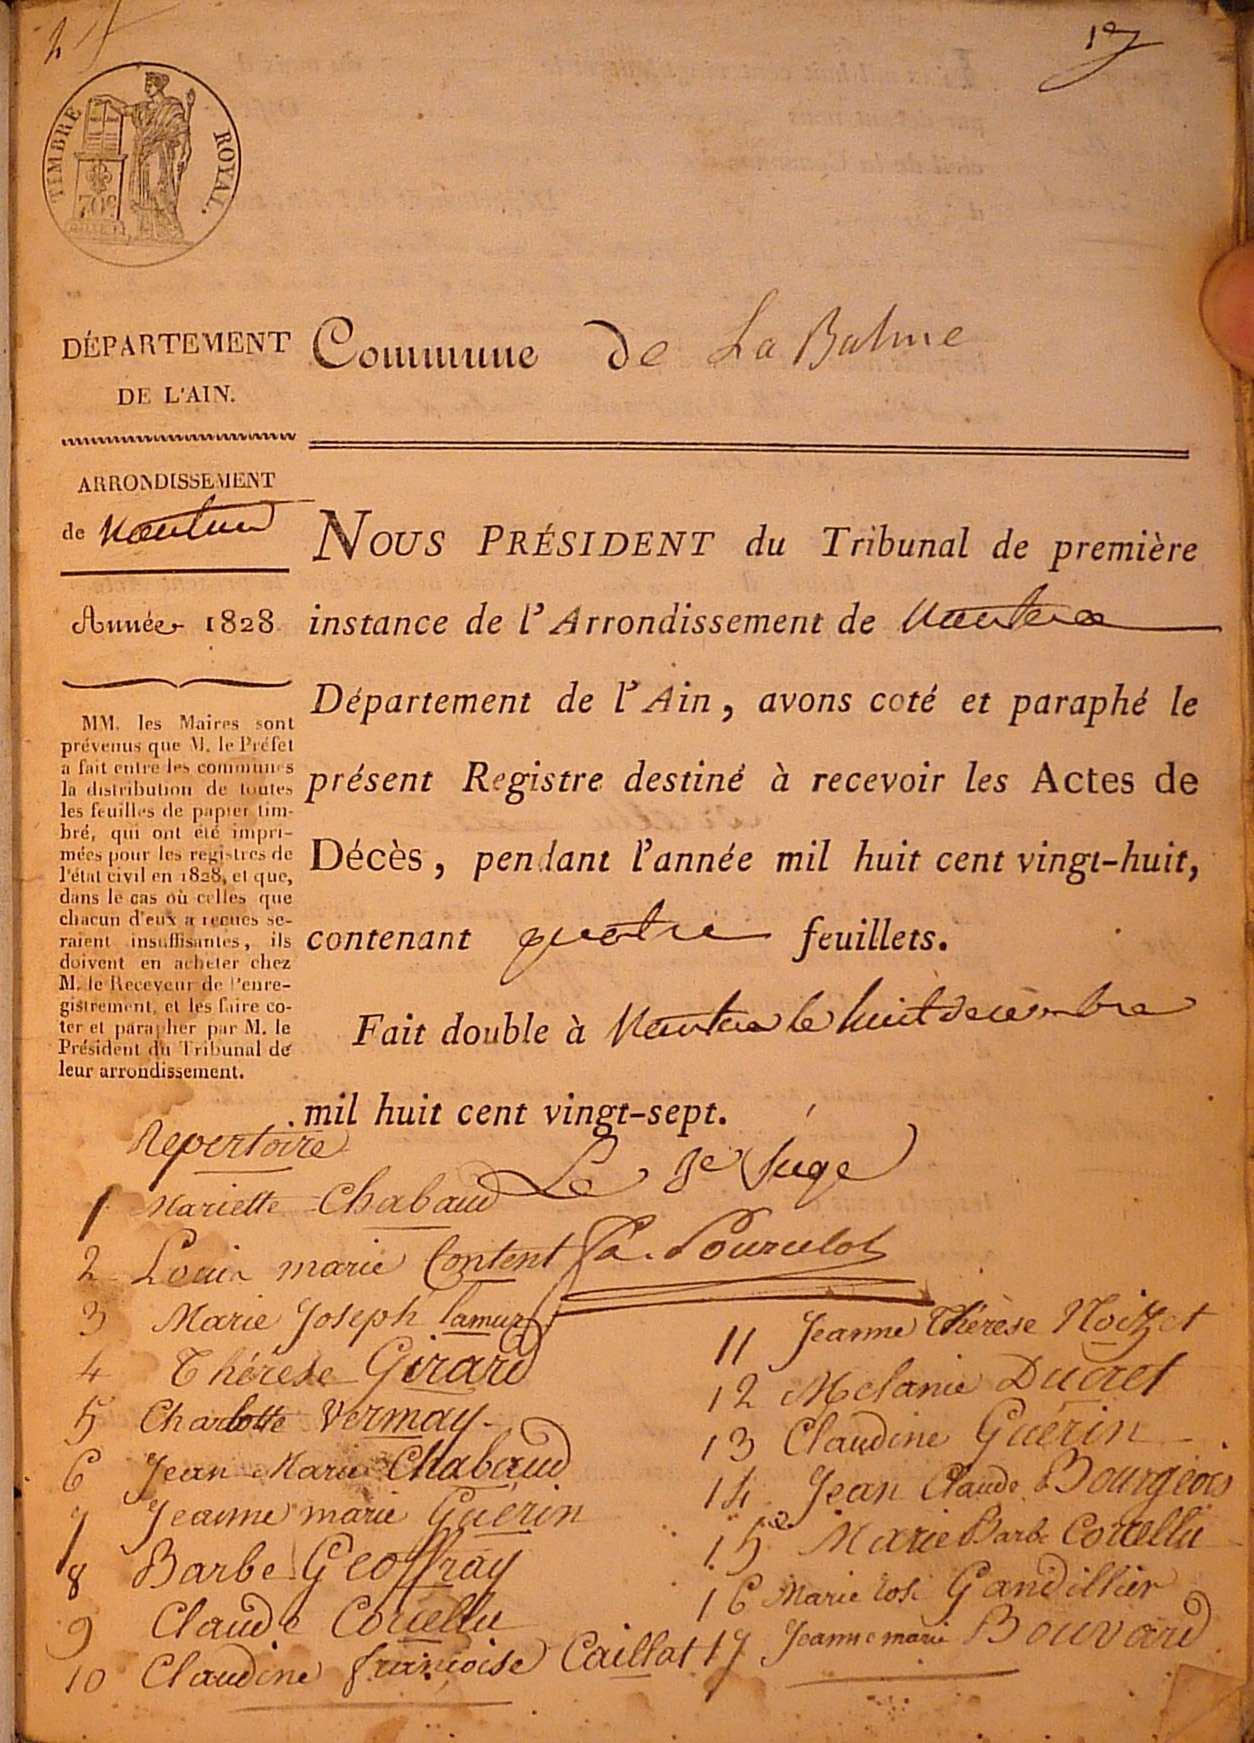 TIMBRE ROYAL.
70c
DÉPARTEMENT
DE L'AIN.
ARRONDISSEMENT
de Nantua
Année 1828
MM. les Maires sont
prévenus que M. le Préfet
a fait entre les communes
la distribution de toutes
les feuilles de papier tim-
bré, qui ont été impri-
mées pour les registres de
l'état civil en 1828, et que,
dans le cas où celles que
chacun d'eux a reçues se-
raient insuffisantes, ils
doivent en acheter chez
M. le Receveur de l'enre-
gistrement, et les faire co-
ter et parapher par M. le
Président du Tribunal de
leur arrondissement.
Commune de La Balme
NOUS PRÉSIDENT du Tribunal de première
instance de l'Arrondissement de Nantua
Département de l'Ain, avons coté et paraphé le
présent Registre destiné à recevoir les Actes de
Décès, pendant l'année mil huit cent vingt-huit,
contenant quatre feuillets.
Fait double à Nantua le huit decembre
mil huit cent vingt-sept.
Le Juge
Repertoire
1 Mariette Chabaud
2 Louis marie Content
3 Marie Joseph Lamur
4 Thérèse Girard
5 Charlotte Vermay
6 Jean Marie Chabaud
7 Jeanne marie Guérin
8 Barbe Geoffray
9 Claude
10 Claudine françoise Caillat
11 Jeanne Thérèse Noizet
12 Melanie Ducret
13 Claudine Guérin
14 Jean Claude Bourgeois
15 Marie Barbe
16 Marie rose Gandillier
17 Jeanne marie Bouvard